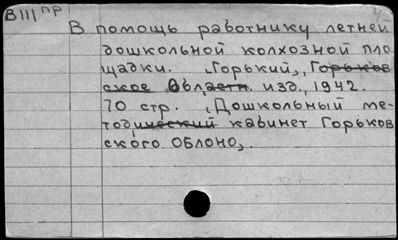 ВIII пр
В помощь работнику летней
дошкольной колхозной пло
щадки. „Горький", Горьков
ское Област. изд., 1942.
70 стр. „Дошкольный ме-
тодический кабинет Горьков
ского ОБЛОНО".